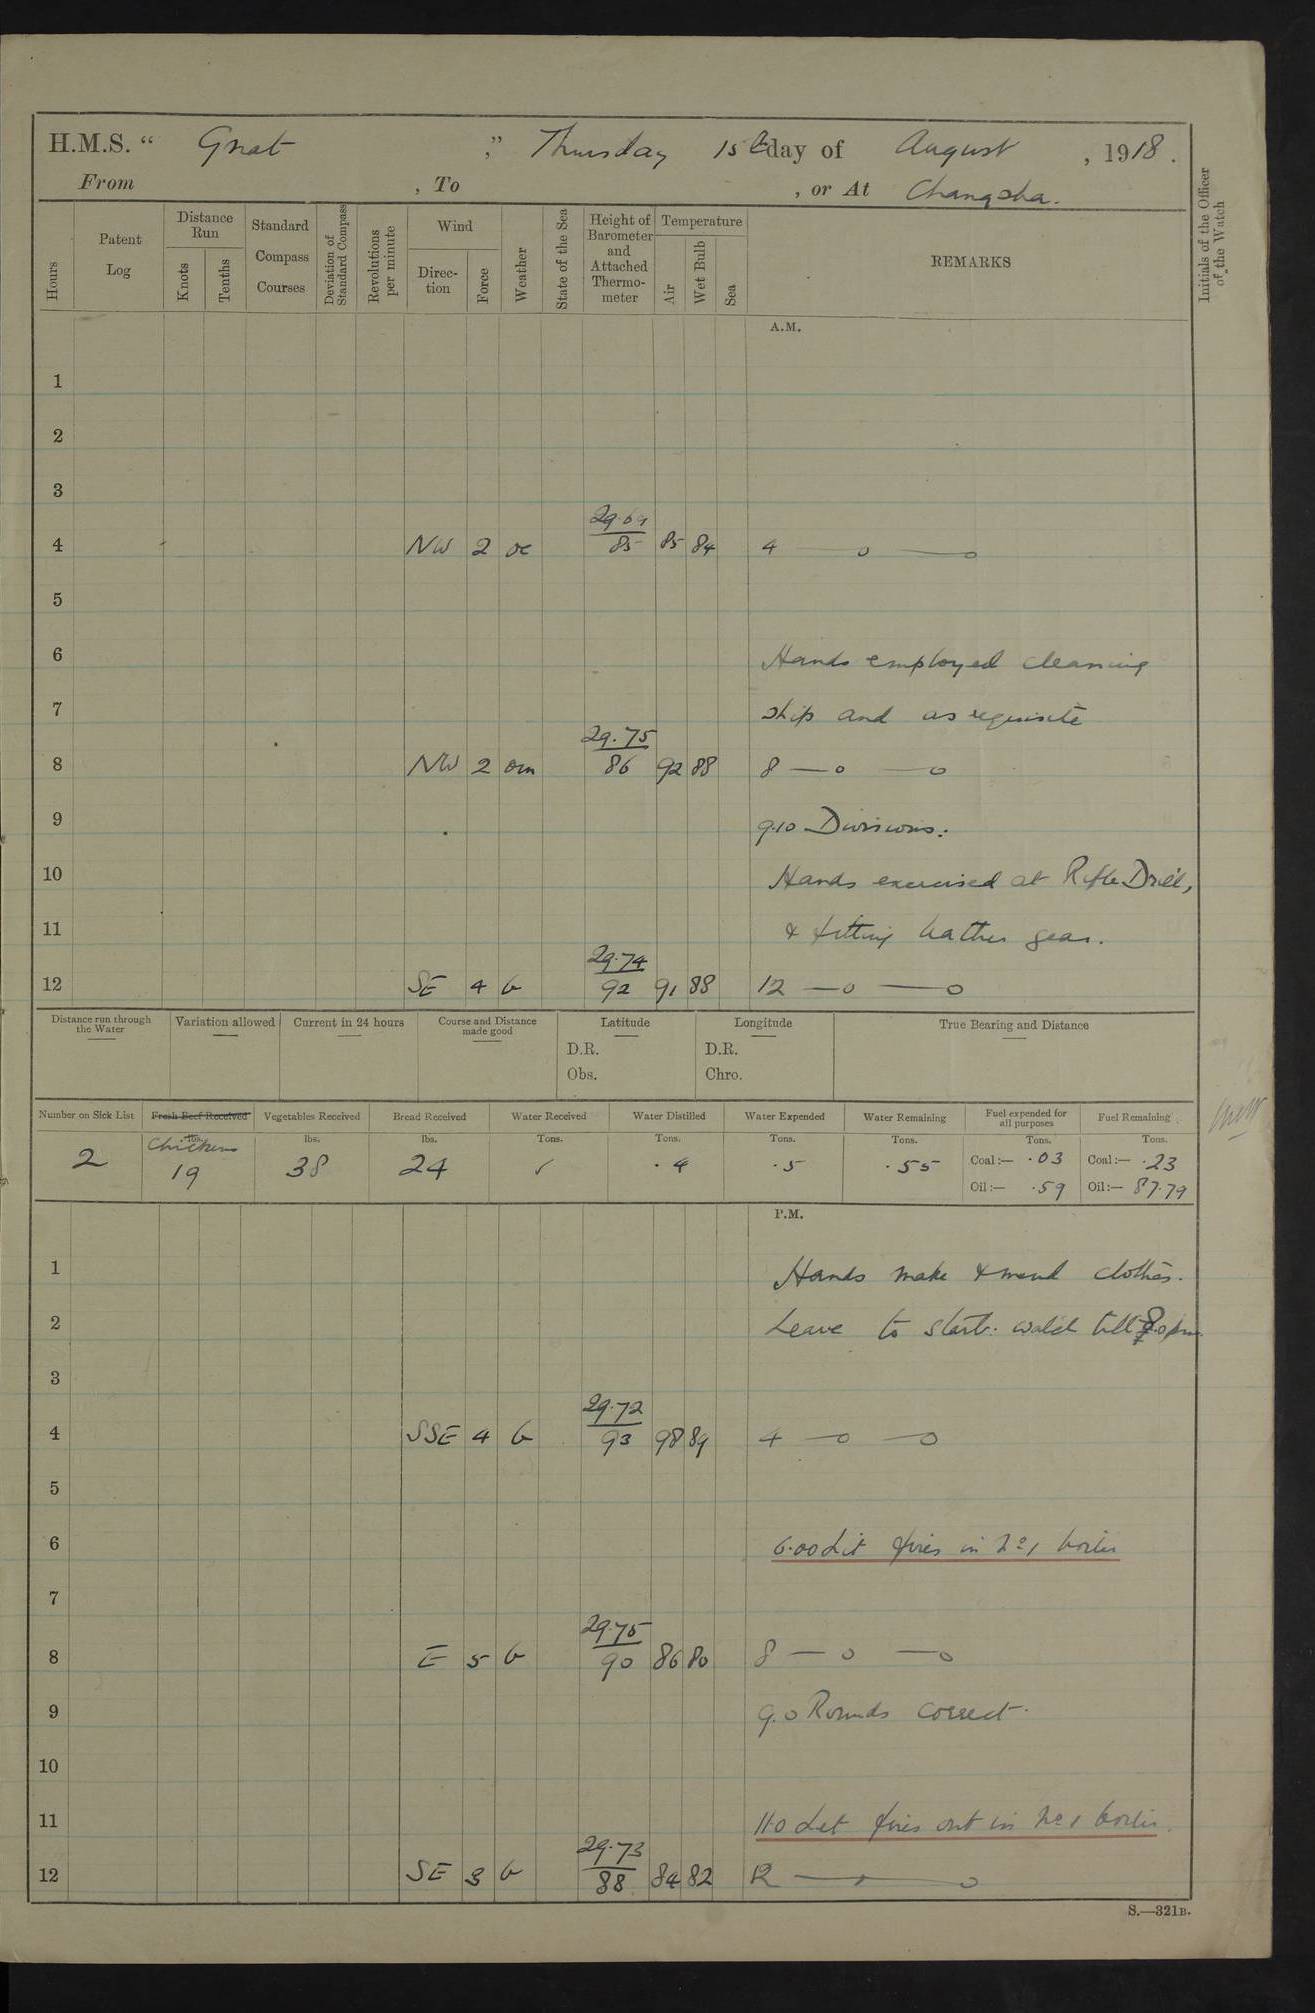 H.M.S. “ Gnat ,” Thursday 15th day of August , 1918 .
From , To , or At Changsha.
Hours Patent Log Distance Run Knots Tenths Standard Compass Courses Deviation of Standard Compass Revolutions per minute Wind Direc- tion Force Weather State of the Sea Height of Barometer and Attached Thermo- meter Temperature Air Wet Bulb Sea REMARKS Initials of the Officer of the Watch
A.M.
1
2
3
29.69
4 NW 2 oc 85 85 84 4 —o —o
5
6 Hands employed cleaning
7 ship and as requisite
29.75
8 NW 2 om 86 92 88 8 —o —o
9 9.10 Divisions.
10 Hands exercised at Rifle Drill,
11 & fitting leather gear.
29.74
12 SE 4 b 92 91 88 12 —o —o
Distance run through the Water Variation allowed Current in 24 hours Course and Distance made good Latitude Longitude True Bearing and Distance
D.R. D.R.
Obs. Chro.
Number on Sick List Fresh Beef Received Vegetables Received Bread Received Water Received Water Distilled Water Expended Water Remaining Fuel expended for all purposes Fuel Remaining
Chickens lbs. lbs. Tons. Tons. Tons. Tons. Tons. Tons.
2 19 38 24 ✓ .4 .5 .55 Coal:— .03 Coal:— .23
Oil:— .59 Oil:— 87.79
P.M.
1 Hands make & mend clothes.
2 Leave to starb: watch till 8.0pm.
3
29.72
4 SSE 4 b 93 98 89 4 —o —o
5
6 6.00 Lit fires in No 1 boiler
7
29.75
8 E 5 b 90 86 80 8 —o —o
9 9.0 Rounds correct.
10
11 11.0 Let fires out in No 1 boiler.
29.73
12 SE 3 b 88 84 82 12 — —o
S.—321B.